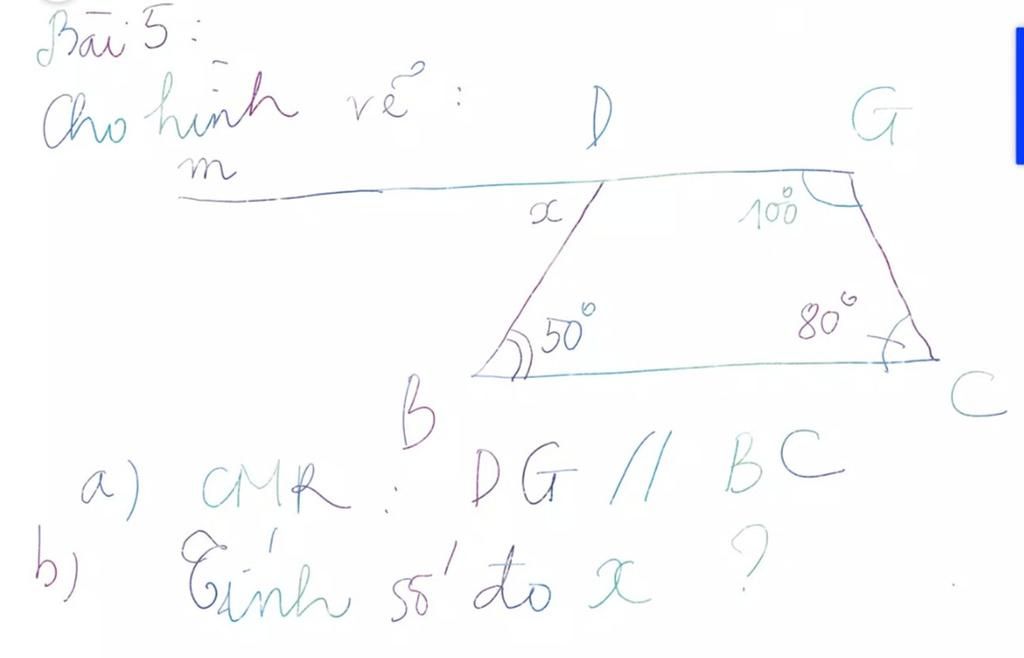 Bài 5:
Cho hình vẽ:
D
G
m
x
100°
50°
80°
B
C
a) CMR: DG // BC
b) Tính số đo x ?